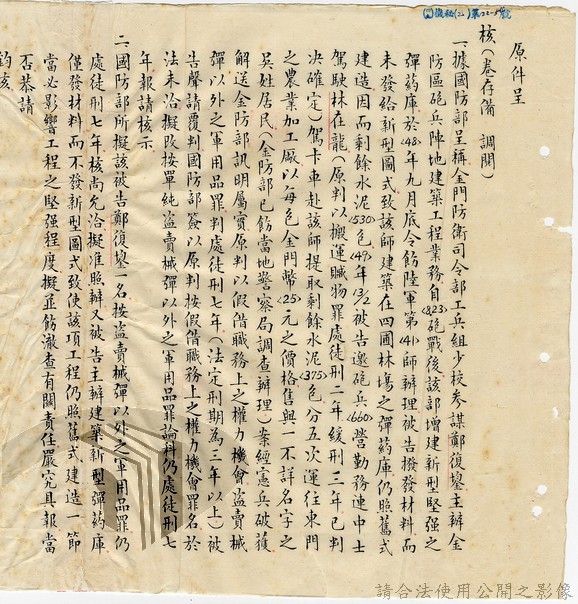 原件呈
核(卷存備 調閱)
一、據國防部呈稱金門防衛司令部工兵組少校參謀鄭復鋆主辦金
防區砲兵陣地建築工程業務自(823)砲戰後該部增建新型堅強之
彈药庫於(48)年九月底令飭陸軍第(41)師辦理被告撥發材料而
未發給新型圖式致該師建築在四圃林場之彈药庫仍照舊式
建造因而剩餘水泥(530)包(49)年13/2被告邀砲兵(660)營勤務連中士
駕駛林在龍(原判以搬運贓物罪處徒刑二年緩刑三年已判
決確定)駕卡車赴該師提取剩餘水泥(375)包分五次運往東門
之農業加工廠以每包金門幣(25)元之價格售與一不詳名字之
吳姓居民(金防部已飭當地警察局調查辦理)案經憲兵破獲
解送金防部訊明屬實原判以假借職務上之權力機會盜賣械
彈以外之軍用品罪判處徒刑七年(法定刑期為三年以上)被
告聲請覆判國防部簽以原判按假借職務上之權力機會罪名於
法未洽擬改按單純盜賣械彈以外之軍用品罪論科仍處徒刑七
年報請核示
二、國防部所擬該被告鄭復鋆一名按盜賣械彈以外之軍用品罪仍
處徒刑七年核尚允洽擬准照辦又被告主辦建築新型彈药庫
僅發材料而不發新型圖式致使該項工程仍照舊式建造一節
當必影響工程之堅强程度擬並飭澈查有關責任嚴究具報當
否恭請
鈞核
請合法使用公開之影像